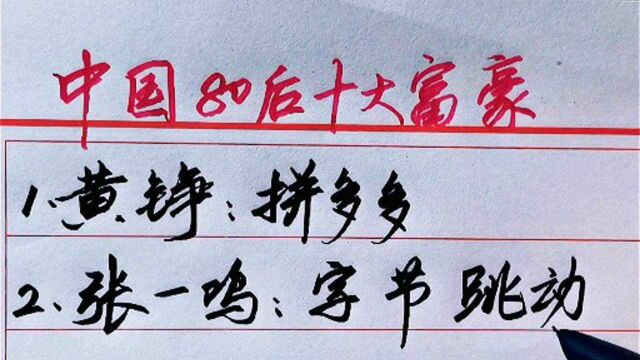 中国80后十大富豪
1.黄铮：拼多多
2.张一鸣：字节跳动